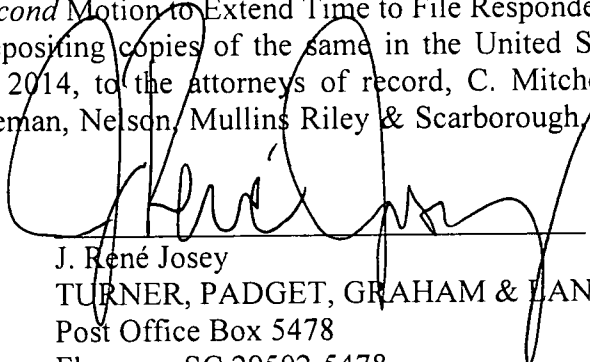 cond Motion to Extend Time to File Responde
epositing copies of the same in the United S
2014, to the attorneys of record, C. Mitch
eman, Nelson, Mullins Riley & Scarborough,
J René Josey
J. René Josey
TURNER, PADGET, GRAHAM & LAN
Post Office Box 5478
SC 29502-5478